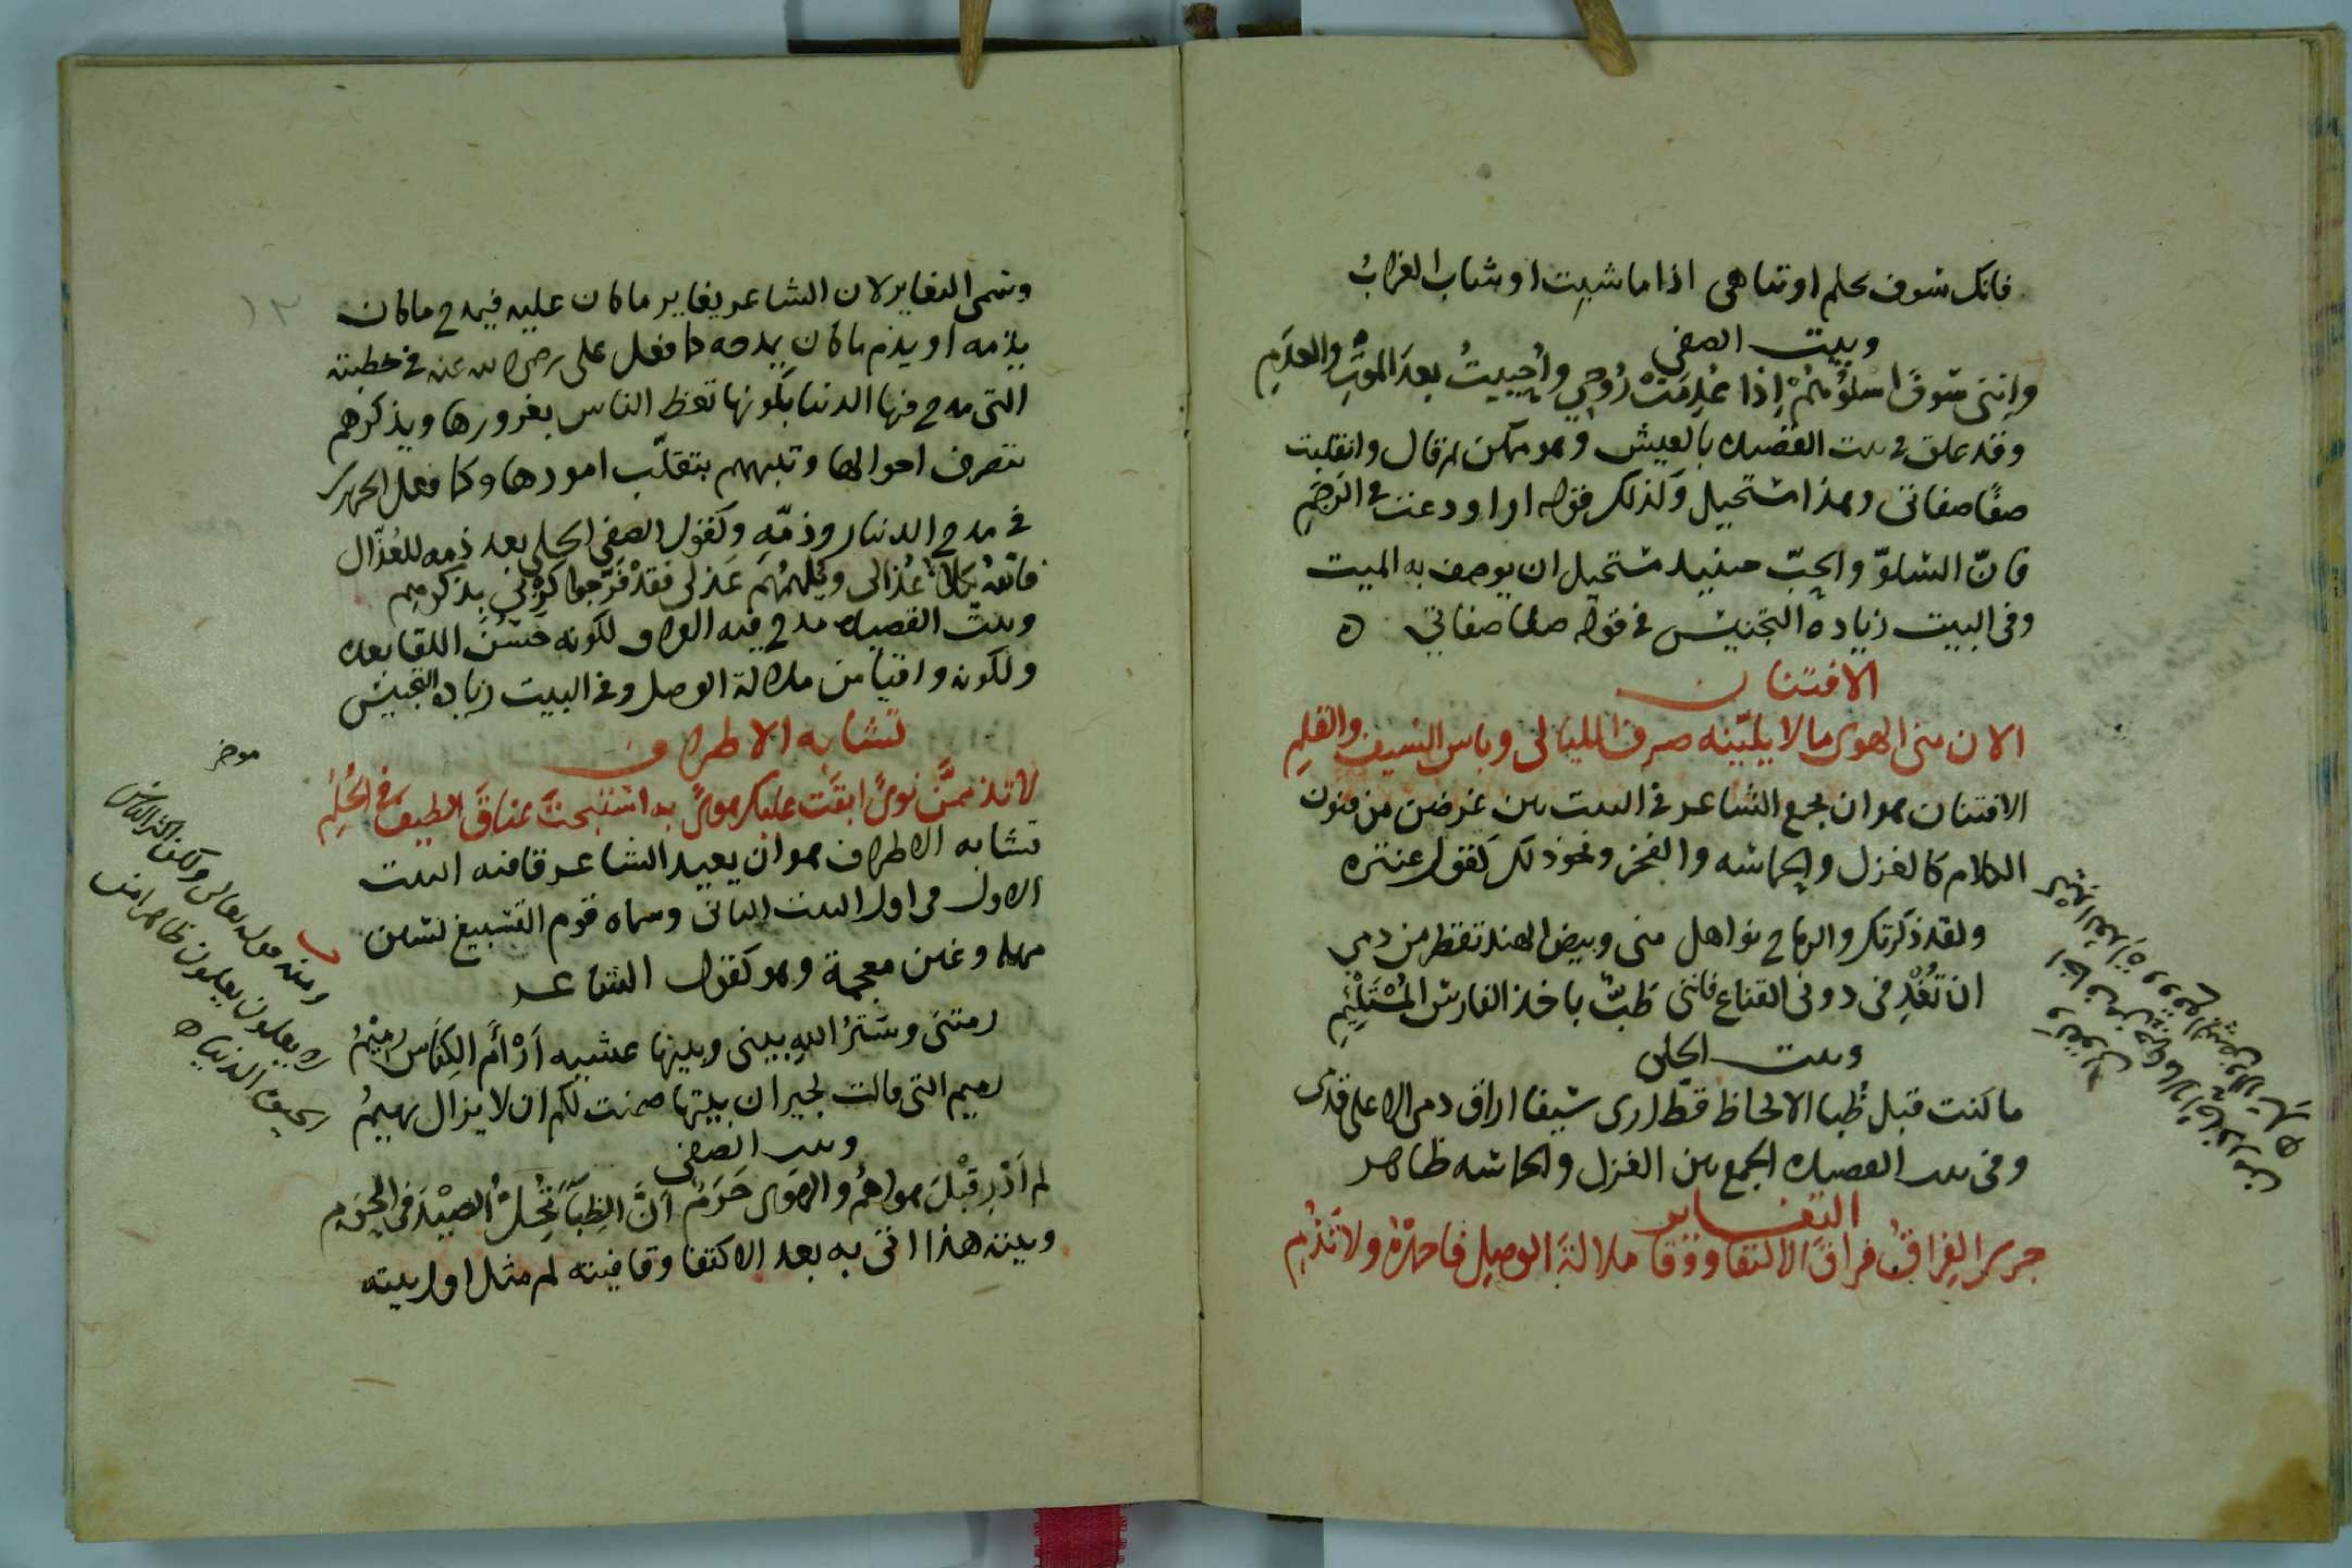 فانك سوف تحلم او تناهى اذا ما شبت او شاب الغراب
وبيت الصفي
وانني سوف اسلوهم اذا عدمت روحي واحييت بعد الموت والعدم
وقد علق في بيت القصيده بالعيش وهو ممكن ثم قال وانقلبت
صفا صفاتي وهذا مستحيل وكذلك قوله او اودعت في الرخم
فان السلو والحب حينيد مستحيل ان يوصف به الميت
وفي البيت زياده التجنيس في قوله صفا صفاتي ه
الافتنان
الان مني الهوى ما لا يلينه صرف الليالي وباس السيف والقلم
الافتنان هو ان يجمع الشاعر في البيت بين غرضين من فنون
الكلام كالغزل والحماسه والفخر ونحو ذلك كقول عنتره
ولقد ذكرتك والرماح نواهل مني وبيض الهند تقطر من دمي
ان تغدفي دوني القناع فانني طب باخذ الفارس المستلئم
وبيت الحلي
ما كنت قبل ظبا الالحاظ قط ارى سيفا اراق دمي الا على قدمي
وفي بيت القصيده الجمع بين الغزل والحماسه ظاهر
التغاير
جرير الفراق فراق الالتقا ووقا ملالة الوصل فاحمده ولا تذم
وسمى التغاير لان الشاعر يغاير ما كان عليه فيمدح ما كان
يذمه او يذم ما كان يمدحه كما فعل علي رضي الله عنه في خطبته
التي مدح فيها الدنيا بكونها تعظ الناس بغرورها ويذكرهم
بتصرف احوالها وتنبههم بتقلب امورها وكما فعل الحريري
في مدح الدينار وذمه وكقول الصفي الحلي بعد ذمه للعذال
فالله يكلا عذالي ويلهمهم عذلي فقد فرجوا كربي بذكرهم
وبيت القصيده مدح فيه الفراق لكونه حسن اللقا بعده
ولكونه واقيا من ملالة الوصل وفي البيت زياده التجنيس
تشابه الاطراف
لا تذممن نوى ابقت عليك هوى به استبحت عناق الطيف في الحلم
تشابه الاطراف هو ان يعيد الشاعر قافيه البيت
الاول في اول البيت الثاني وسماه قوم التسبيغ بسين
مهمله وغين معجمة وهو كقول الشاعر
رمتني وستر الله بيني وبينها عشيه ارام الكناس رميم
رميم التي قالت لجيران بيتها ضمنت لكم ان لا يزال يهيم
وبيت الصفي
لم ادر قبل هواهم والهوى حرم ان الظبا تحل الصيد في الحرم
وبيته هذا اتى به بعد الاكتفا وقافيته لم مثل اول بيته
ومنه قوله تعالى ولكن اكثر الناس
لا يعلمون يعلمون ظاهرا من
الحيوة الدنيا ه